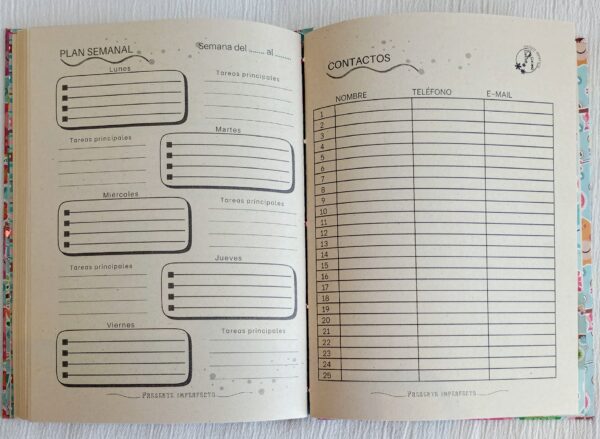 PLAN SEMANAL
Semana del ....... al .......
Lunes
Tareas principales
Tareas principales
Martes
Miércoles
Tareas principales
Tareas principales
Jueves
Viernes
Tareas principales
PRESENTE IMPERFECTO
CONTACTOS
NOMBRE TELÉFONO E-MAIL
1
2
3
4
5
6
7
8
9
10
11
12
13
14
15
16
17
18
19
20
21
22
23
24
25
PRESENTE IMPERFECTO